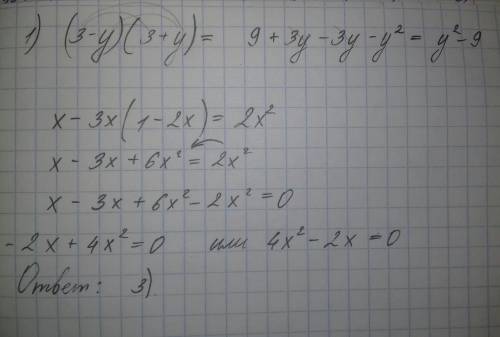 1) (3-y)(3+y)= 9+3y-3y-y²= y²-9
x-3x(1-2x)= 2x²
x-3x+6x²= 2x²
x-3x+6x²-2x²=0
-2x+4x²=0 или 4x²-2x=0
Ответ: 3)